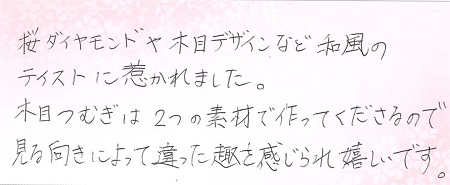 桜ダイヤモンドや木目デザインなど和風の
テイストに惹かれました。
木目つむぎは2つの素材で作ってくださるので
見る向きによって違った趣を感じられ嬉しいです。